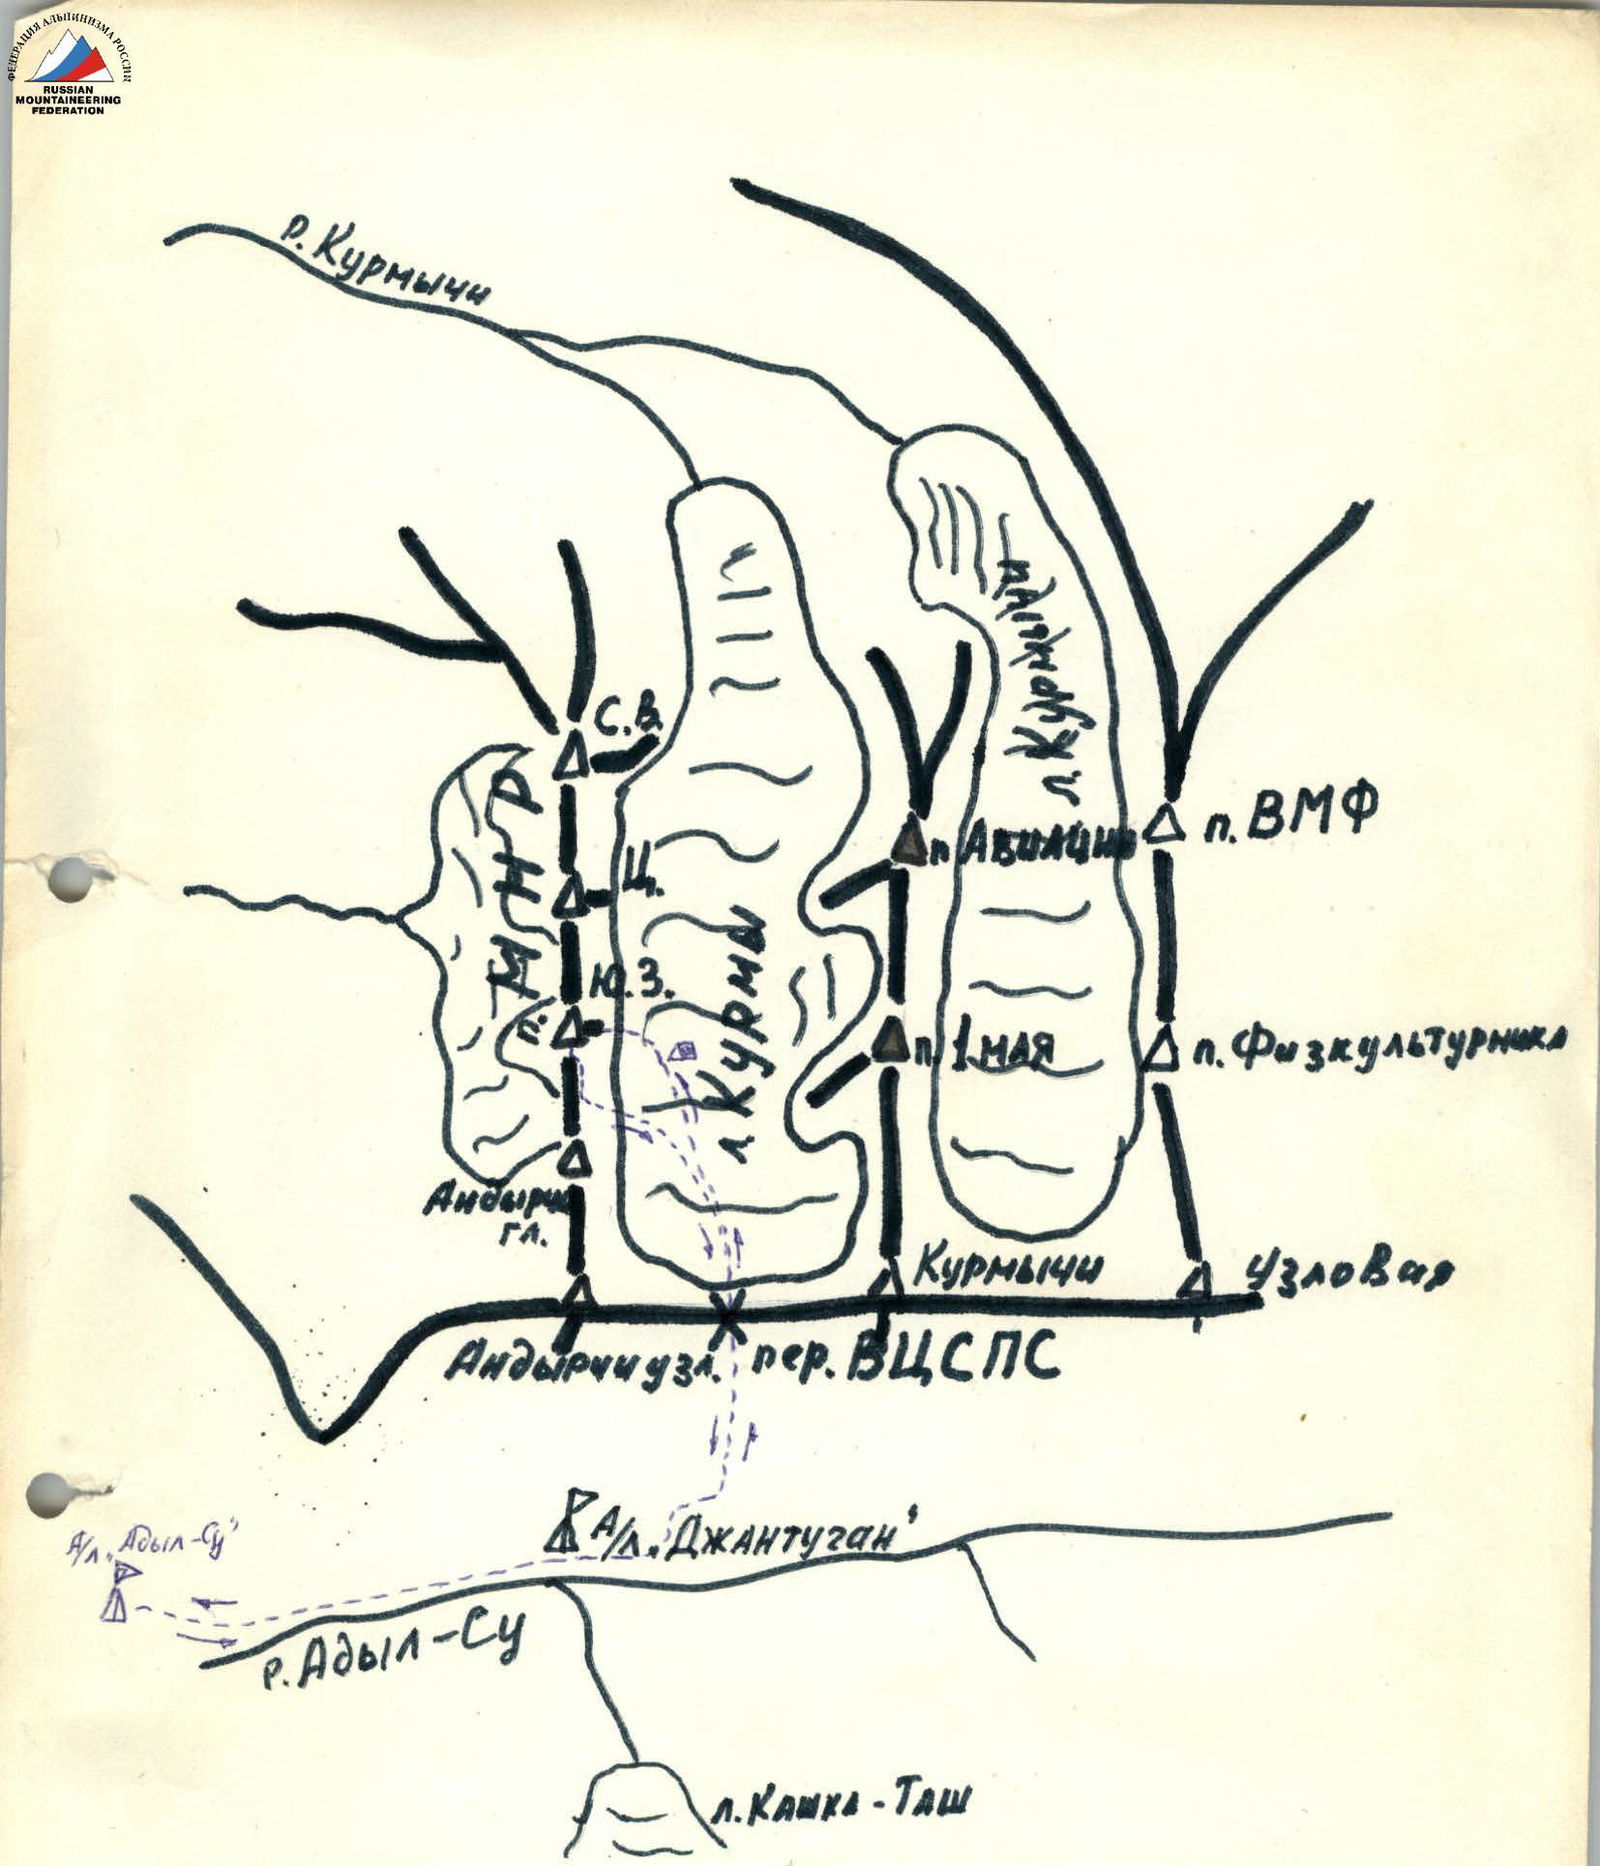 ФЕДЕРАЦИЯ АЛЬПИНИЗМА РОССИИ
RUSSIAN
MOUNTAINEERING
FEDERATION
р. Курмычи
л. Курмычи
С.В.
п. МНР
Ц.
Ю.З.
л. Курмы
п. Авиации
п. ВМФ
п. 1 МАЯ
п. Физкультурника
Андырчи
гл.
Курмычи
Узловая
Андырчи узл.
пер. ВЦСПС
А/л „Джантуган"
А/л „Адыл-Су"
р. Адыл-Су
л. Кашка-Таш